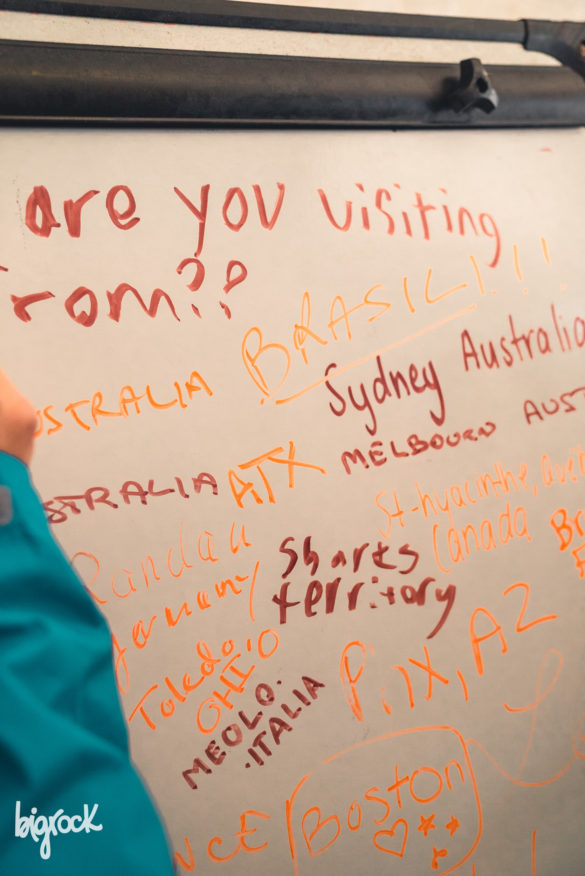 are you visiting
rom??
BRASIL!!!
USTRALIA
Sydney Australia
MELBOURN AUST
STRALIA
ATX
St-hyacinthe, Québ
Canada
Landau
Germany
Sharks
territory
Toledo,
OHIO
PHX, AZ
MEOLO.
.ITALIA
NCE
Boston
bigrock